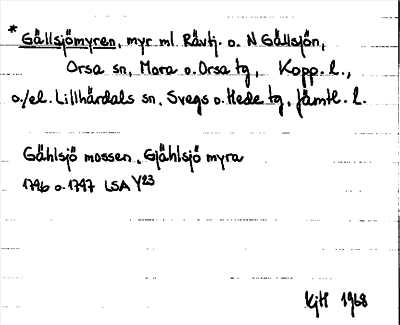 * Gällsjömyren, myr ml. Råvtj. o. N Gällsjön,
Orsa sn, Mora o. Orsa tg, Kopp. l.,
o./el. Lillhärdals sn, Svegs o. Hede tg, Jämtl. l.
Gåhlsjö mossen, Gjåhlsjö myra
1796 o. 1797 LSA Y23
KjH 1968